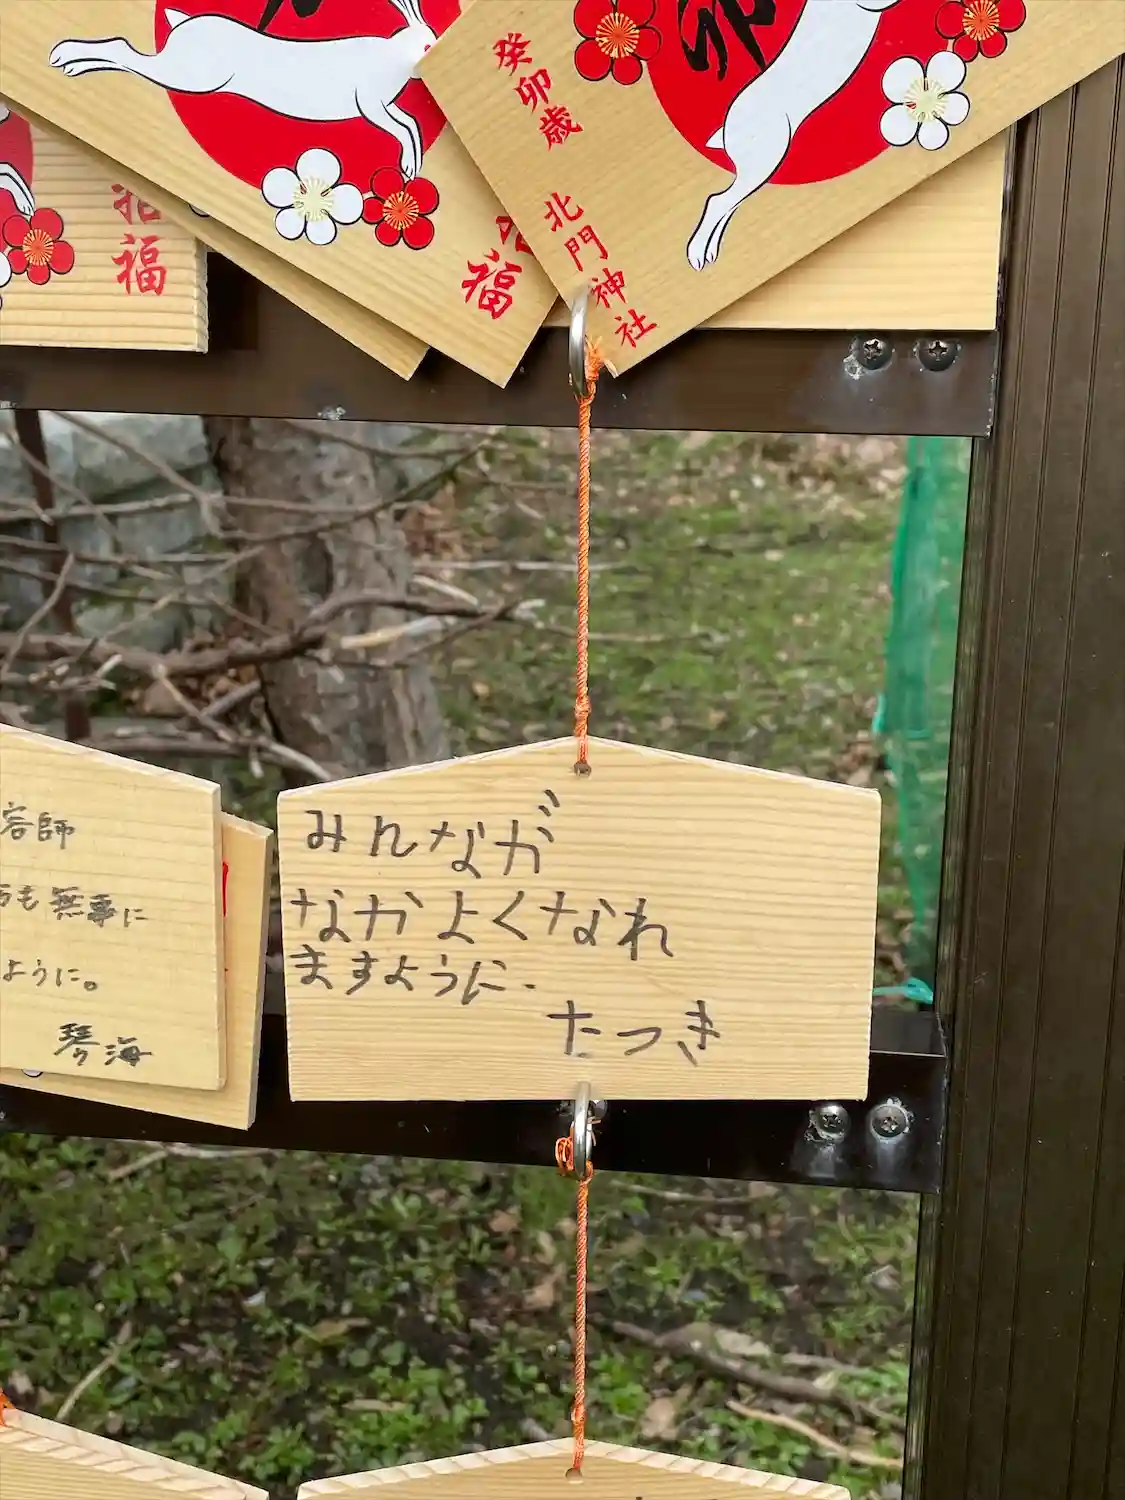 卯
癸卯歳 北門神社
招福
福
みんなが
なかよくなれ
ますように.
たつき
容師
も無事に
ように。
琴海